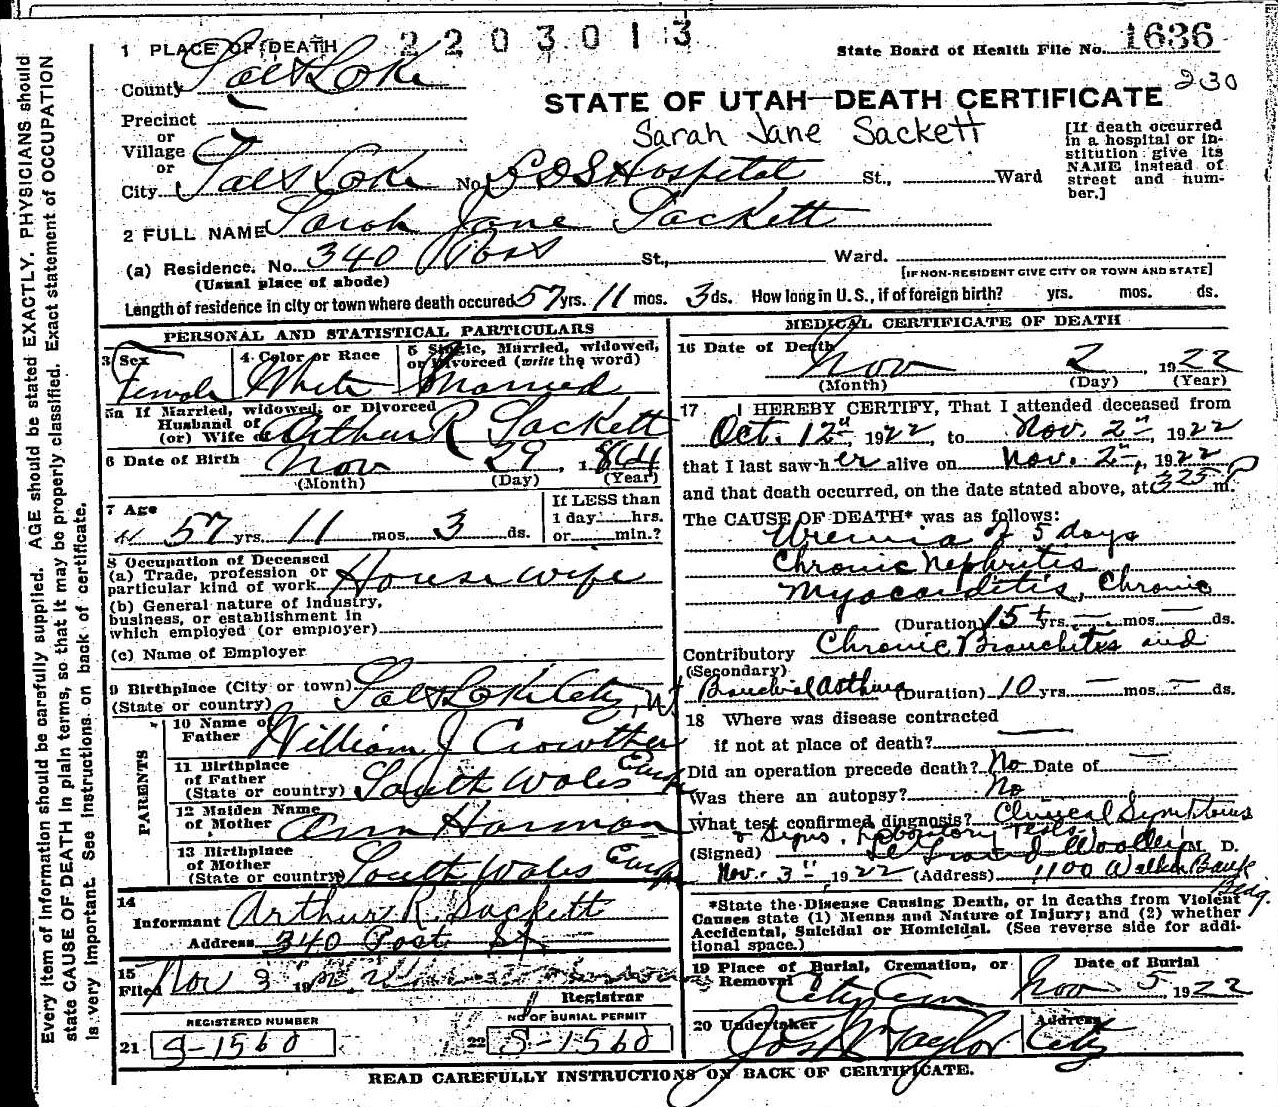 1 PLACE OF DEATH 2203013
State Board of Health File No. 1636
County Salt Lake
230
STATE OF UTAH—DEATH CERTIFICATE
Precinct
or
Village
or
Sarah Jane Sackett
[If death occurred in a hospital or institution give its NAME instead of street and number.]
City Salt Lake No. LDS Hospital St., Ward
2 FULL NAME Sarah Jane Sackett
(a) Residence. No. 340 Post St., Ward.
(Usual place of abode) [IF NON-RESIDENT GIVE CITY OR TOWN AND STATE]
Length of residence in city or town where death occured 57 yrs. 11 mos. 3 ds. How long in U. S., if of foreign birth? yrs. mos. ds.
PERSONAL AND STATISTICAL PARTICULARS
3 Sex Female
4 Color or Race White
5 Single, Married, widowed, or Divorced (write the word) Married
5a If Married, widowed, or Divorced
Husband of
(or) Wife of Arthur R Sackett
6 Date of Birth Nov 29, 1864
(Month) (Day) (Year)
7 Age 57 yrs. 11 mos. 3 ds.
If LESS than
1 day hrs.
or min.?
8 Occupation of Deceased
(a) Trade, profession or
particular kind of work Housewife
(b) General nature of industry,
business, or establishment in
which employed (or employer)
(c) Name of Employer
9 Birthplace (City or town) Salt Lake City, Ut
(State or country)
PARENTS
10 Name of
Father William J Crowther
11 Birthplace
of Father
(State or country) South Wales
12 Maiden Name
of Mother Ann Harmon
13 Birthplace
of Mother
(State or country) South Wales
14
Informant Arthur R. Sackett
Address 340 Post St
15
Filed Nov 3 19
Registrar
REGISTERED NUMBER
21 S-1560
NO OF BURIAL PERMIT
22 S-1560
MEDICAL CERTIFICATE OF DEATH
16 Date of Death Nov 2, 1922
(Month) (Day) (Year)
17 I HEREBY CERTIFY, That I attended deceased from
Oct. 12", 1922, to Nov. 2", 1922
that I last saw her alive on Nov. 2", 1922
and that death occurred, on the date stated above, at 325 P m.
The CAUSE OF DEATH* was as follows:
Uremia of 5 days
Chronic Nephritis
Myocarditis, Chronic
(Duration) 15+ yrs. — mos. — ds.
Contributory Chronic Bronchitis and
(Secondary)
Bronchial Asthma (Duration) 10 yrs. — mos. — ds.
18 Where was disease contracted
if not at place of death? —
Did an operation precede death? No Date of —
Was there an autopsy? No
What test confirmed diagnosis? Clinical Symptoms
& Signs. Laboratory Tests
(Signed) Woolley M. D.
Nov. 3", 1922 (Address) 1100 Walker Bank
Bldg.
*State the Disease Causing Death, or in deaths from Violent
Causes state (1) Means and Nature of Injury; and (2) whether
Accidental, Suicidal or Homicidal. (See reverse side for addi-
tional space.)
19 Place of Burial, Cremation, or
Removal City Cem
Date of Burial
Nov 5, 1922
20 Undertaker Jos Wm Taylor
Address City
READ CAREFULLY INSTRUCTIONS ON BACK OF CERTIFICATE.
Every item of information should be carefully supplied. AGE should be stated EXACTLY. PHYSICIANS should
state CAUSE OF DEATH in plain terms, so that it may be properly classified. Exact statement of OCCUPATION
is very important. See instructions on back of certificate.